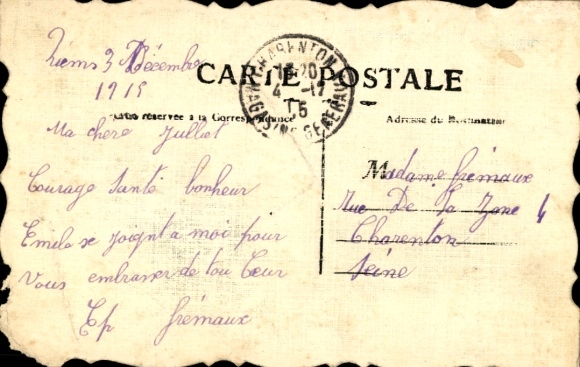 Riems 3 Décembre
1915
CARTE POSTALE
réservée à la Correspondance
Adresse du Destinataire
CHARENTON
15-20
4-12
15
MAGASINS GENERAUX
Ma chère Julliet
Courage Santé bonheur
Emile se joignt a moi pour
Vous embrasser de tou Cœur
Ep Frémaux
M
Madame Frémaux
Rue De la Zone 4
Charenton
Seine